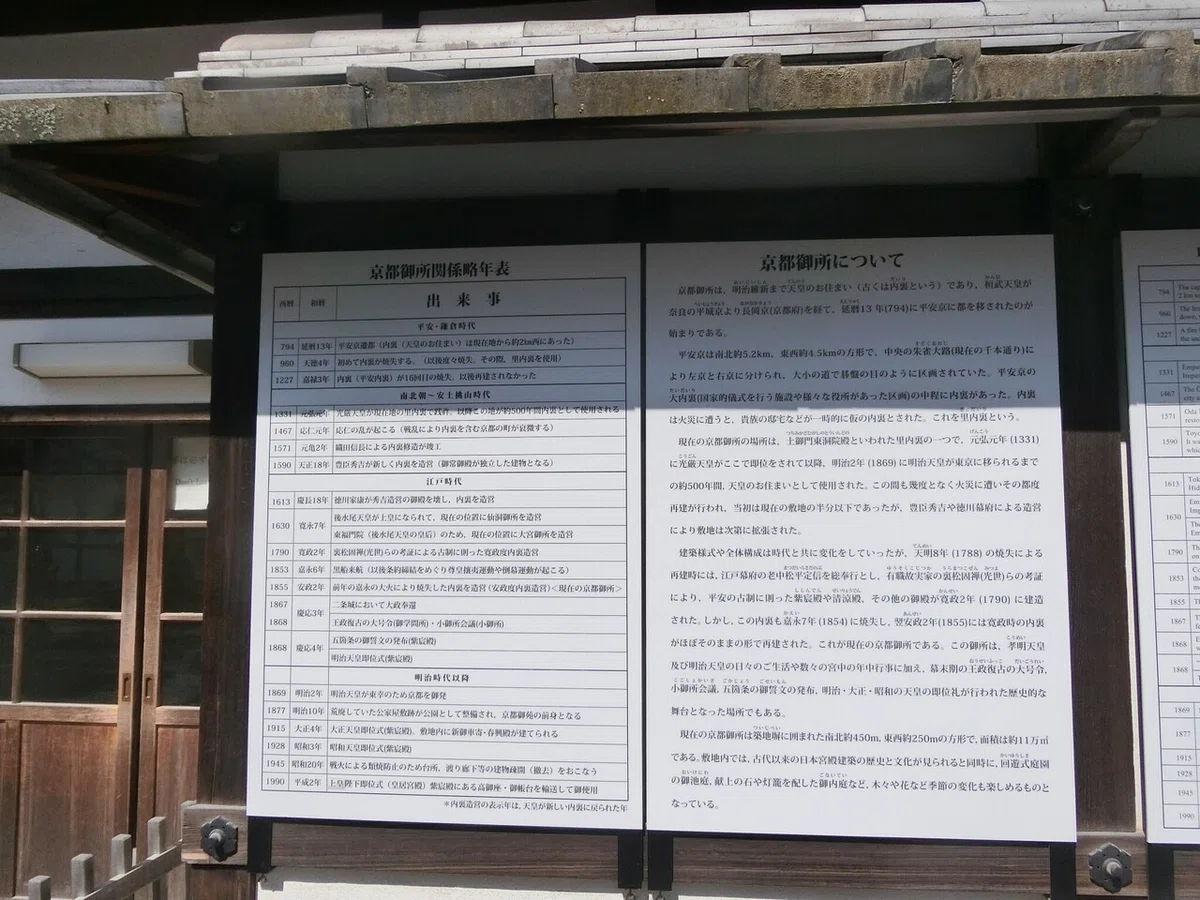 京都御所関係略年表
西暦 和暦 出来事
平安・鎌倉時代
794 延暦13年 平安京遷都（内裏（天皇のお住まい）は現在地から約2km西にあった）
960 天徳4年 初めて内裏が焼失する。（以後度々焼失。その間、里内裏を使用）
1227 嘉禄3年 内裏（平安内裏）が16回目の焼失。以後再建されなかった
南北朝～安土桃山時代
1331 元弘元年 光厳天皇が現在地の里内裏で践祚。以降この地が約500年間内裏として使用される
1467 応仁元年 応仁の乱が起こる（戦乱により内裏を含む京都の町が衰微する）
1571 元亀2年 織田信長による内裏修造が竣工
1590 天正18年 豊臣秀吉が新しく内裏を造営（御常御殿が独立した建物となる）
江戸時代
1613 慶長18年 徳川家康が秀吉造営の御殿を壊し、内裏を造営
1630 寛永7年 後水尾天皇が上皇になられて、現在の位置に仙洞御所を造営
東福門院（後水尾天皇の皇后）のため、現在の位置に大宮御所を造営
1790 寛政2年 裏松固禅(光世)らの考証による古制に則った寛政度内裏造営
1853 嘉永6年 黒船来航（以後条約締結をめぐり尊皇攘夷運動や倒幕運動が起こる）
1855 安政2年 前年の嘉永の大火により焼失した内裏を造営（安政度内裏造営）＜現在の京都御所＞
1867 慶応3年 二条城において大政奉還
1868 王政復古の大号令(御学問所)・小御所会議(小御所)
1868 慶応4年 五箇条の御誓文の発布(紫宸殿)
明治天皇即位式(紫宸殿)
明治時代以降
1869 明治2年 明治天皇が東幸のため京都を御発
1877 明治10年 荒廃していた公家屋敷跡が公園として整備され、京都御苑の前身となる
1915 大正4年 大正天皇即位式(紫宸殿)。敷地内に新御車寄・春興殿が建てられる
1928 昭和3年 昭和天皇即位式(紫宸殿)
1945 昭和20年 戦火による類焼防止のため台所、渡り廊下等の建物疎開（撤去）をおこなう
1990 平成2年 上皇陛下即位式（皇居宮殿）紫宸殿にある高御座・御帳台を輸送して御使用
＊内裏造営の表示年は、天皇が新しい内裏に戻られた年
京都御所について
京都御所は、明治維新まで天皇のお住まい（古くは内裏という）であり、桓武天皇が
奈良の平城京より長岡京(京都府)を経て、延暦13年(794)に平安京に都を移されたのが
始まりである。
平安京は南北約5.2km、東西約4.5kmの方形で、中央の朱雀大路(現在の千本通り)に
より左京と右京に分けられ、大小の道で碁盤の目のように区画されていた。平安京の
大内裏(国家的儀式を行う施設や様々な役所があった区画)の中程に内裏があった。内裏
は火災に遭うと、貴族の邸宅などが一時的に仮の内裏とされた。これを里内裏という。
現在の京都御所の場所は、土御門東洞院殿といわれた里内裏の一つで、元弘元年(1331)
に光厳天皇がここで即位をされて以降、明治2年(1869)に明治天皇が東京に移られるまで
の約500年間、天皇のお住まいとして使用された。この間も幾度となく火災に遭いその都度
再建が行われ、当初は現在の敷地の半分以下であったが、豊臣秀吉や徳川幕府による造営
により敷地は次第に拡張された。
建築様式や全体構成は時代と共に変化をしていったが、天明8年(1788)の焼失による
再建時には、江戸幕府の老中松平定信を総奉行とし、有職故実家の裏松固禅(光世)らの考証
により、平安の古制に則った紫宸殿や清涼殿、その他の御殿が寛政2年(1790)に建造
された。しかし、この内裏も嘉永7年(1854)に焼失し、翌安政2年(1855)には寛政時の内裏
がほぼそのままの形で再建された。これが現在の京都御所である。この御所は、孝明天皇
及び明治天皇の日々のご生活や数々の宮中の年中行事に加え、幕末期の王政復古の大号令、
小御所会議、五箇条の御誓文の発布、明治・大正・昭和の天皇の即位礼が行われた歴史的な
舞台となった場所でもある。
現在の京都御所は築地塀に囲まれた南北約450m、東西約250mの方形で、面積は約11万㎡
である。敷地内では、古代以来の日本宮殿建築の歴史と文化が見られると同時に、回遊式庭園
の御池庭、献上の石や灯籠を配した御内庭など、木々や花など季節の変化も楽しめるものと
なっている。
794
960
1227
1331
1467
1571
1590
1613
1630
1790
1853
1855
1867
1868
1868
1869
1877
1915
1928
1945
1990